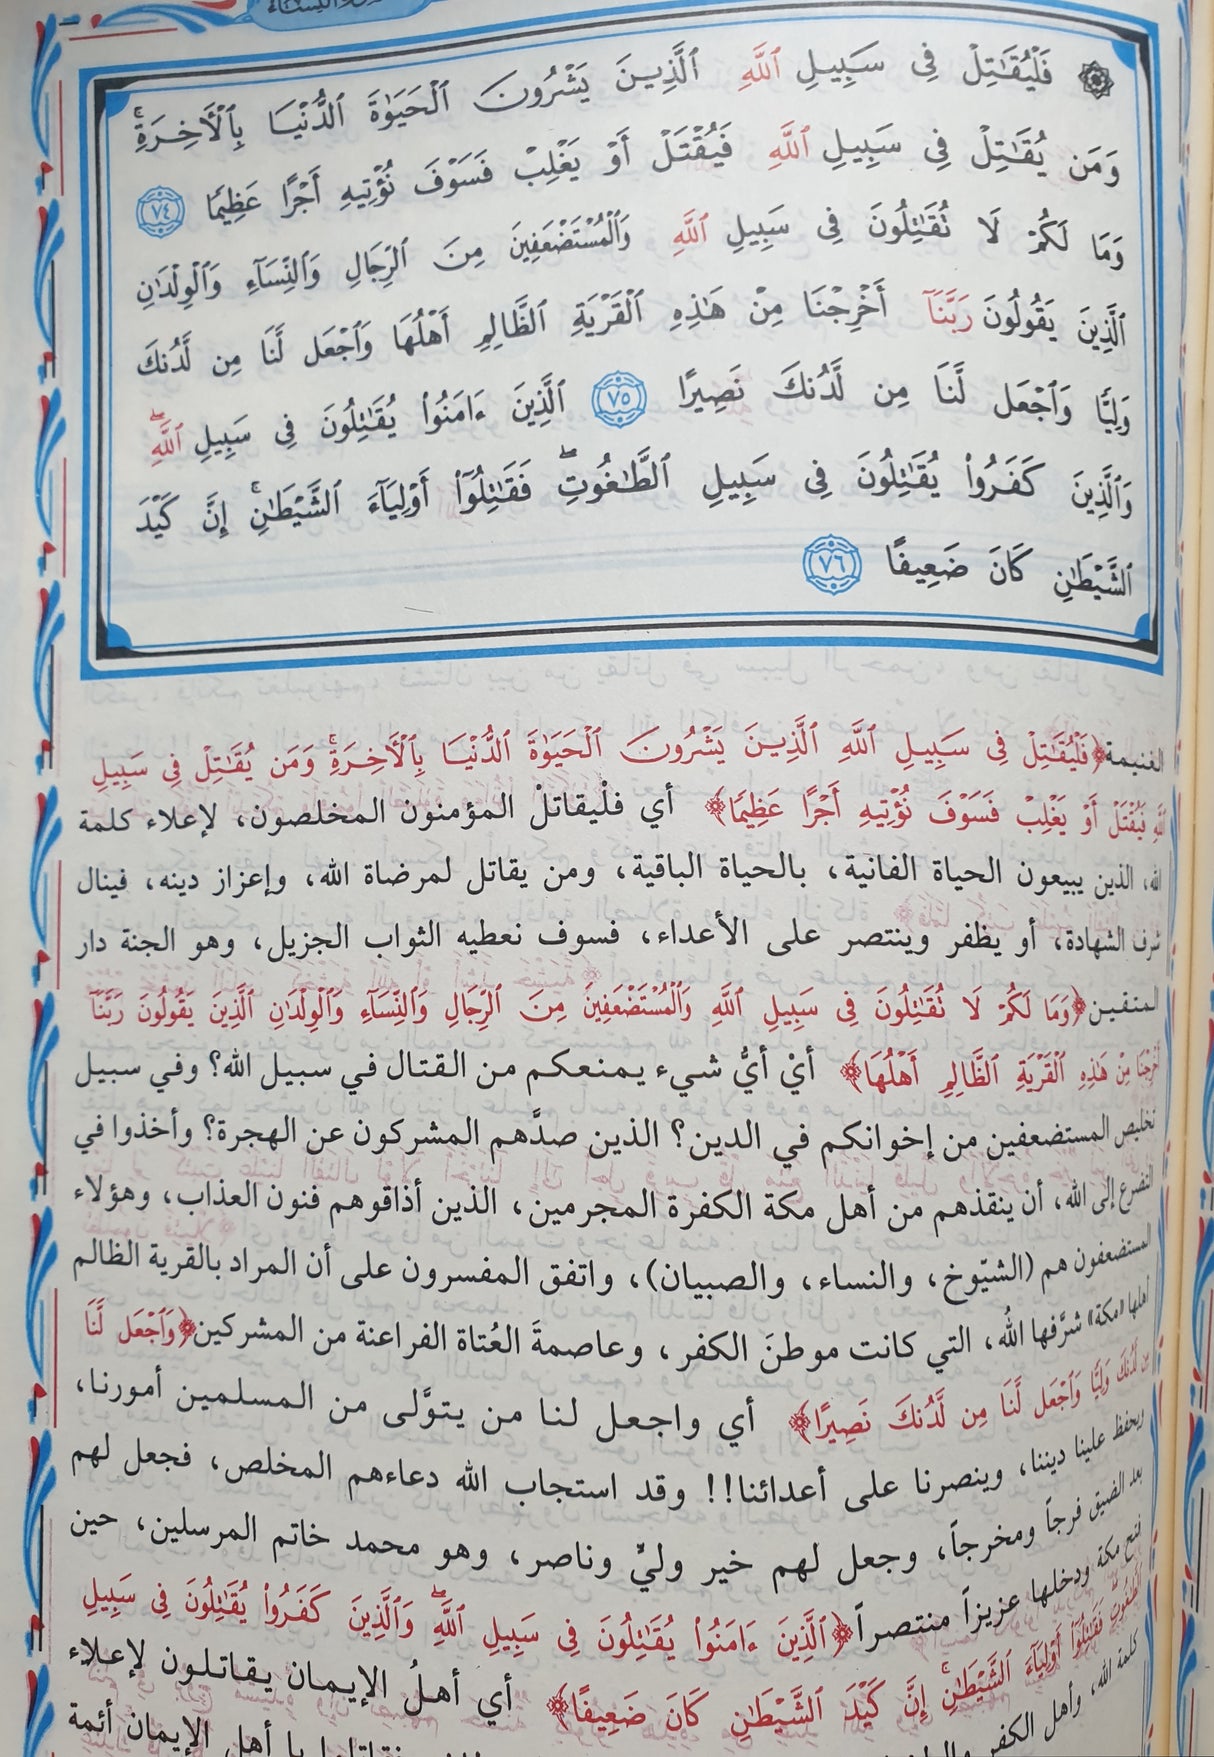 ۞ فَلْيُقَٰتِلْ فِى سَبِيلِ ٱللَّهِ ٱلَّذِينَ يَشْرُونَ ٱلْحَيَوٰةَ ٱلدُّنْيَا بِٱلْءَاخِرَةِۚ
وَمَن يُقَٰتِلْ فِى سَبِيلِ ٱللَّهِ فَيُقْتَلْ أَوْ يَغْلِبْ فَسَوْفَ نُؤْتِيهِ أَجْرًا عَظِيمًا ٧٤
وَمَا لَكُمْ لَا تُقَٰتِلُونَ فِى سَبِيلِ ٱللَّهِ وَٱلْمُسْتَضْعَفِينَ مِنَ ٱلرِّجَالِ وَٱلنِّسَآءِ وَٱلْوِلْدَٰنِ
ٱلَّذِينَ يَقُولُونَ رَبَّنَآ أَخْرِجْنَا مِنْ هَٰذِهِ ٱلْقَرْيَةِ ٱلظَّالِمِ أَهْلُهَا وَٱجْعَل لَّنَا مِن لَّدُنكَ
وَلِيًّا وَٱجْعَل لَّنَا مِن لَّدُنكَ نَصِيرًا ٧٥ ٱلَّذِينَ ءَامَنُوا۟ يُقَٰتِلُونَ فِى سَبِيلِ ٱللَّهِۖ
وَٱلَّذِينَ كَفَرُوا۟ يُقَٰتِلُونَ فِى سَبِيلِ ٱلطَّٰغُوتِۖ فَقَٰتِلُوٓا۟ أَوْلِيَآءَ ٱلشَّيْطَٰنِۚ إِنَّ كَيْدَ
ٱلشَّيْطَٰنِ كَانَ ضَعِيفًا ٧٦
الغنيمة ﴿فَلْيُقَٰتِلْ فِى سَبِيلِ ٱللَّهِ ٱلَّذِينَ يَشْرُونَ ٱلْحَيَوٰةَ ٱلدُّنْيَا بِٱلْءَاخِرَةِۚ وَمَن يُقَٰتِلْ فِى سَبِيلِ
ٱللَّهِ فَيُقْتَلْ أَوْ يَغْلِبْ فَسَوْفَ نُؤْتِيهِ أَجْرًا عَظِيمًا﴾ أي فلْيقاتلْ المؤمنون المخلصون، لإعلاء كلمة
الله، الذين يبيعون الحياة الفانية، بالحياة الباقية، ومن يقاتل لمرضاة الله، وإعزاز دينه، فينال
شرف الشهادة، أو يظفر وينتصر على الأعداء، فسوف نعطيه الثواب الجزيل، وهو الجنة دار
المتقين ﴿وَمَا لَكُمْ لَا تُقَٰتِلُونَ فِى سَبِيلِ ٱللَّهِ وَٱلْمُسْتَضْعَفِينَ مِنَ ٱلرِّجَالِ وَٱلنِّسَآءِ وَٱلْوِلْدَٰنِ ٱلَّذِينَ يَقُولُونَ رَبَّنَآ
أَخْرِجْنَا مِنْ هَٰذِهِ ٱلْقَرْيَةِ ٱلظَّالِمِ أَهْلُهَا﴾ أيْ أيُّ شيء يمنعكم من القتال في سبيل الله؟ وفي سبيل
تخليص المستضعفين من إخوانكم في الدين؟ الذين صدَّهم المشركون عن الهجرة؟ وأخذوا في
التضرع إلى الله، أن ينقذهم من أهل مكة الكفرة المجرمين، الذين أذاقوهم فنون العذاب، وهؤلاء
المستضعفون هم (الشيّوخ، والنساء، والصبيان)، واتفق المفسرون على أن المراد بالقرية الظالم
أهلها «مكة» شرَّفها اللهُ، التي كانت موطنَ الكفر، وعاصمةَ العُتاة الفراعنة من المشركين ﴿وَٱجْعَل لَّنَا
مِن لَّدُنكَ وَلِيًّا وَٱجْعَل لَّنَا مِن لَّدُنكَ نَصِيرًا﴾ أي واجعل لنا من يتوَّلى من المسلمين أمورنا،
ويحفظ علينا ديننا، وينصرنا على أعدائنا!! وقد استجاب الله دعاءهم المخلص، فجعل لهم
بعد الضيق فرجاً ومخرجاً، وجعل لهم خير وليٍّ وناصر، وهو محمد خاتم المرسلين، حين
فتح مكة ودخلها عزيزاً منتصراً ﴿ٱلَّذِينَ ءَامَنُوا۟ يُقَٰتِلُونَ فِى سَبِيلِ ٱللَّهِۖ وَٱلَّذِينَ كَفَرُوا۟ يُقَٰتِلُونَ فِى سَبِيلِ
ٱلطَّٰغُوتِ فَقَٰتِلُوٓا۟ أَوْلِيَآءَ ٱلشَّيْطَٰنِۚ إِنَّ كَيْدَ ٱلشَّيْطَٰنِ كَانَ ضَعِيفًا﴾ أي أهلُ الإيمان يقاتلون لإعلاء
كلمة الله، وأهل الكفر يا أهل الإيمان أئمة